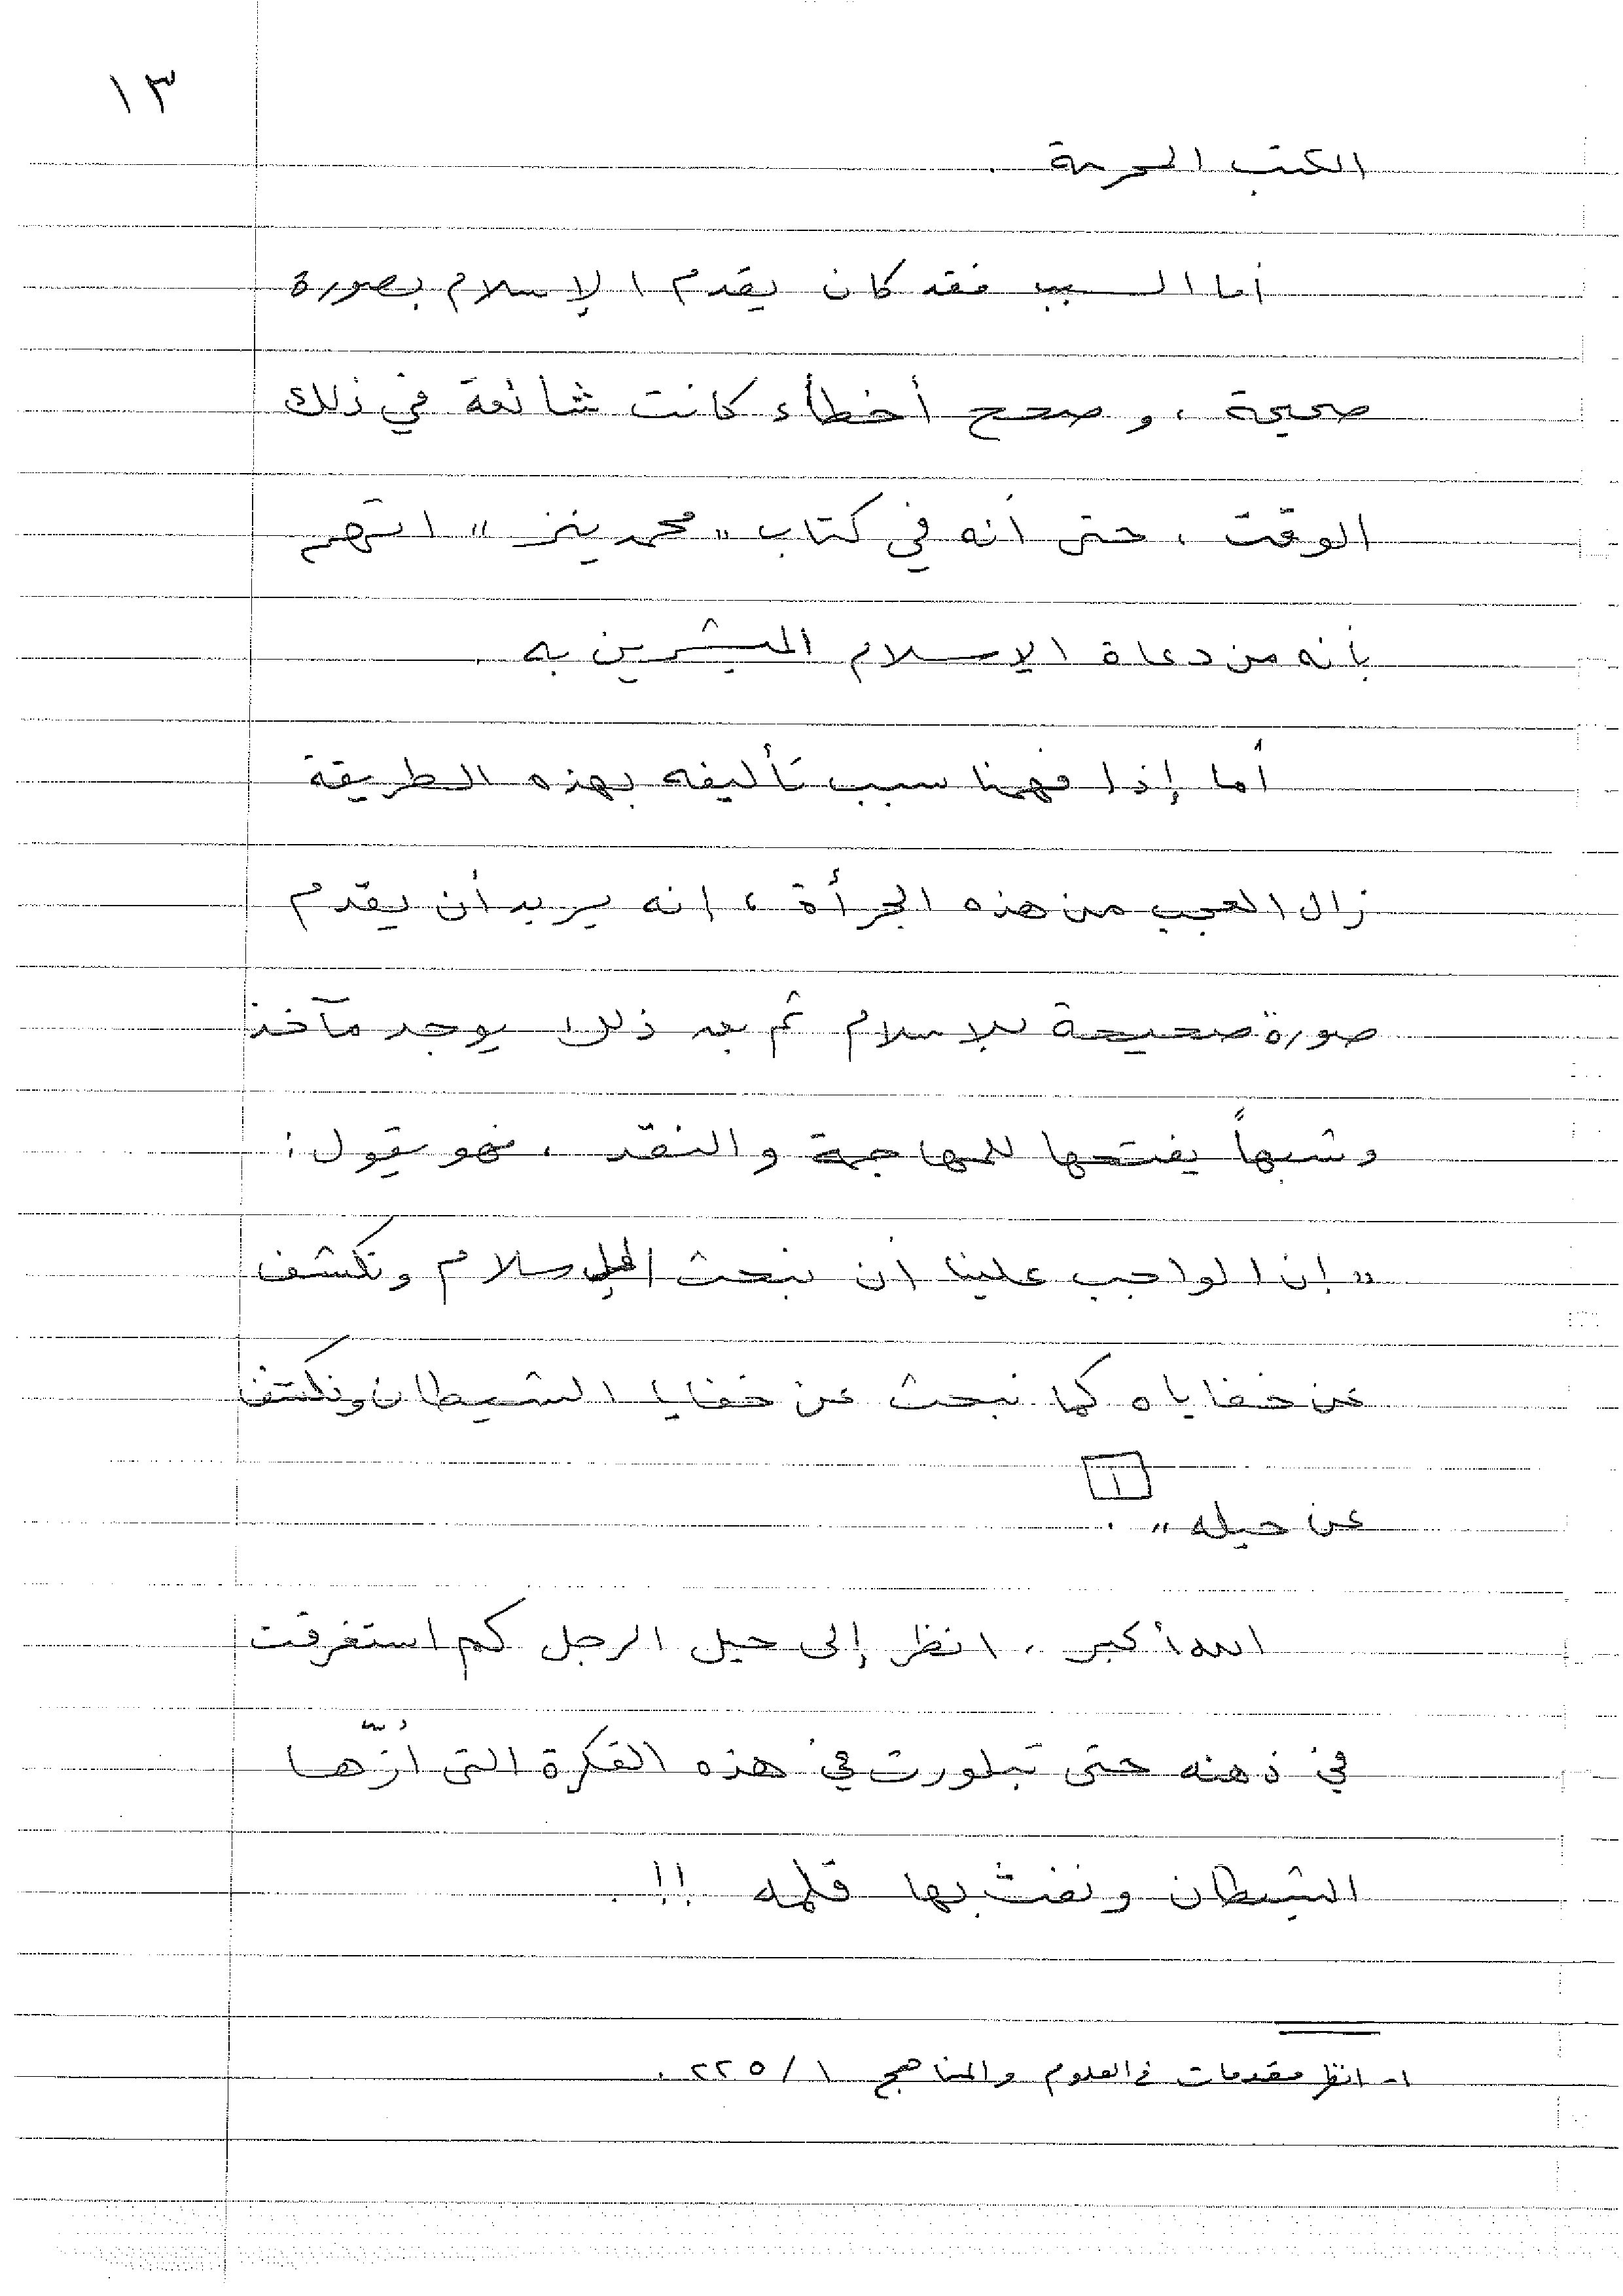 ١٣
الكتب المحرمة .
أما السبب فقد كان يقدم الإسلام بصورة
صحيحة ، و صحح أخطاء كانت شائعة في ذلك
الوقت ، حتى أنه في كتاب " محمدينز " اتهم
بأنه من دعاة الإسلام المبشرين به .
أما إذا فهمنا سبب تأليفه بهذه الطريقة
زال العجب من هذه الجرأة ، انه يريد أن يقدم
صورة صحيحة للإسلام ثم بعد ذلك يوجد مآخذ
وشبهاً يفتحها للمهاجمة والنقد ، فهو يقول :
" إن الواجب علينا أن نبحث الإسلام ونكشف
عن خفاياه كما نبحث عن خفايا الشيطان ونكشف
عن حيله " . [١]
الله أكبر ، انظر إلى حيل الرجل كم استغرقت
في ذهنه حتى تبلورت في هذه الفكرة التي أزّها
الشيطان ونفث بها قلمه !! .
١- انظر مقدمات في العلوم والمناهج ١ / ٢٢٥ .